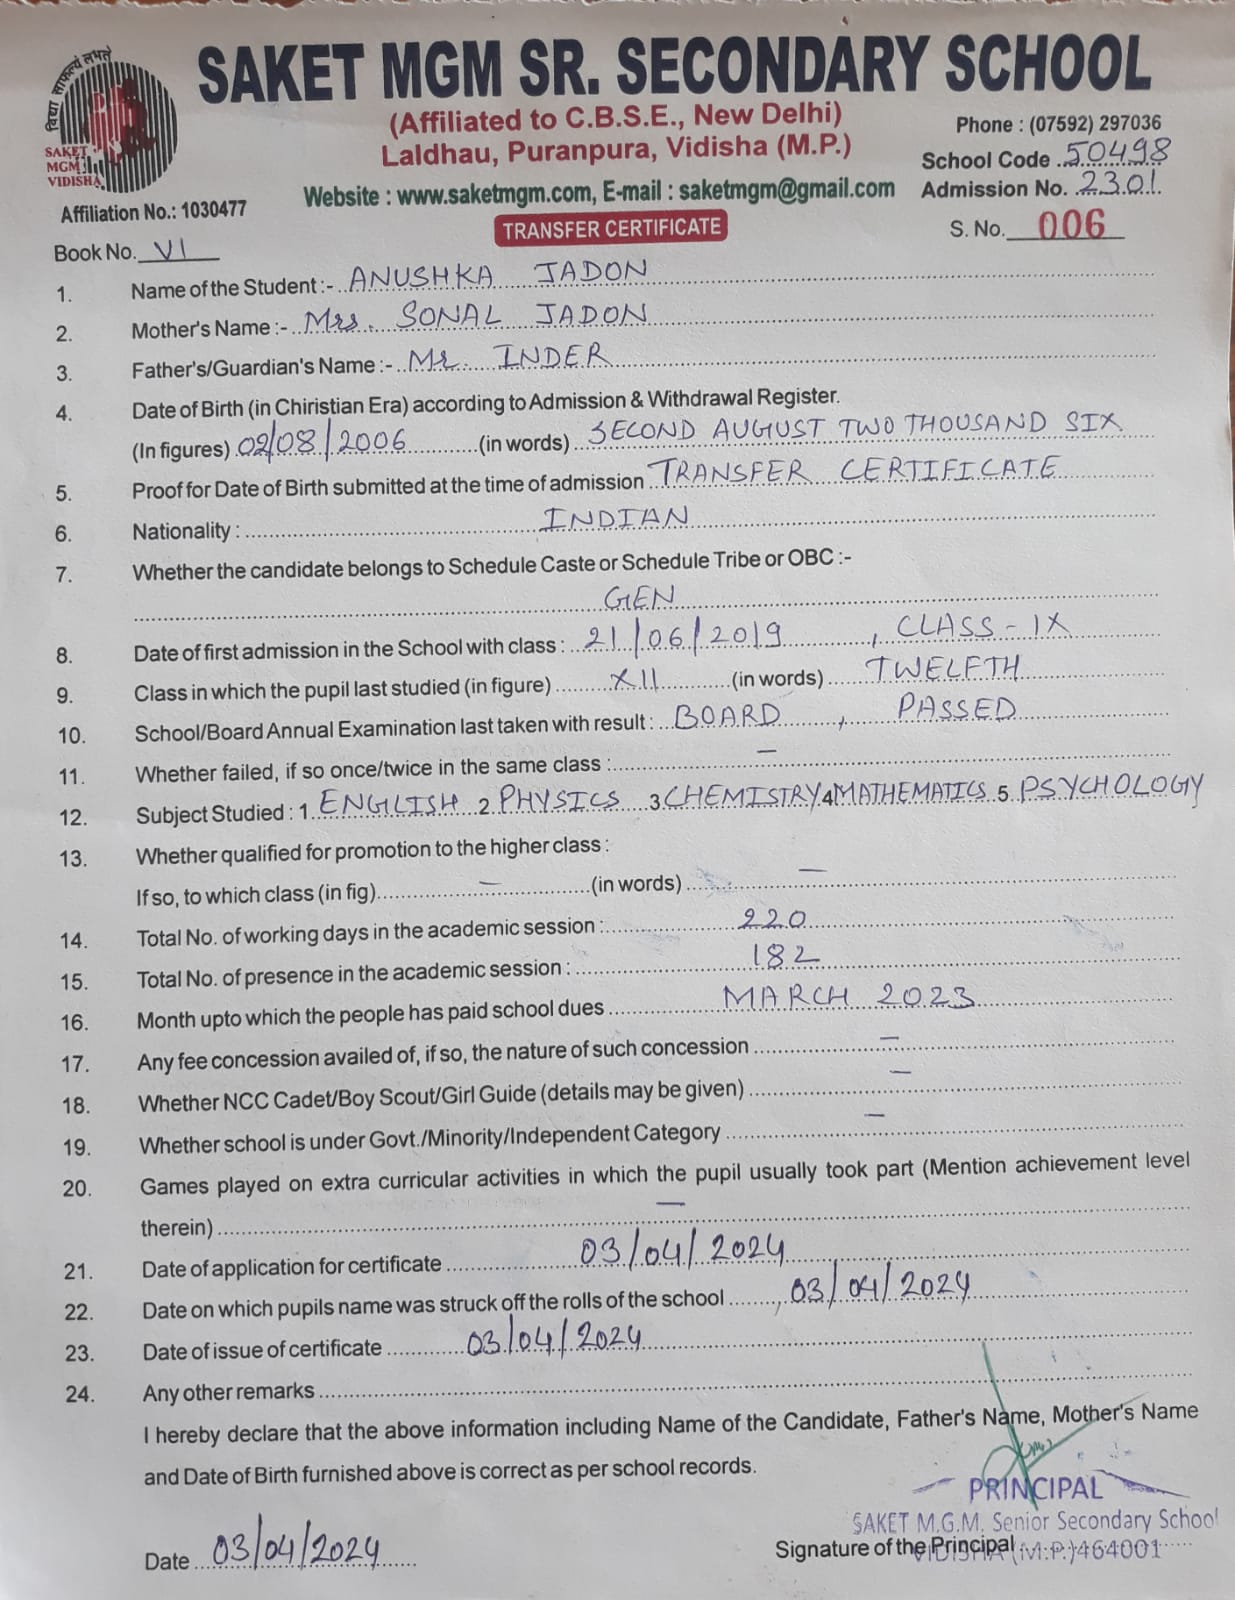 विद्या साफल्यं लभते
SAKET
MGM
VIDISHA
SAKET MGM SR. SECONDARY SCHOOL
(Affiliated to C.B.S.E., New Delhi)
Laldhau, Puranpura, Vidisha (M.P.)
Website : www.saketmgm.com, E-mail : saketmgm@gmail.com
Phone : (07592) 297036
School Code 50498
Admission No. 2301
Affiliation No.: 1030477
TRANSFER CERTIFICATE
S. No. 006
Book No. VI
1. Name of the Student :- ANUSHKA JADON
2. Mother's Name :- Mrs. SONAL JADON
3. Father's/Guardian's Name :- Mr. INDER
4. Date of Birth (in Chiristian Era) according to Admission & Withdrawal Register.
(In figures) 02/08/2006 (in words) SECOND AUGUST TWO THOUSAND SIX
5. Proof for Date of Birth submitted at the time of admission TRANSFER CERTIFICATE
6. Nationality : INDIAN
7. Whether the candidate belongs to Schedule Caste or Schedule Tribe or OBC :-
GEN
8. Date of first admission in the School with class : 21/06/2019, CLASS - IX
9. Class in which the pupil last studied (in figure) XII (in words) TWELFTH
10. School/Board Annual Examination last taken with result : BOARD, PASSED
11. Whether failed, if so once/twice in the same class : —
12. Subject Studied : 1. ENGLISH 2 PHYSICS 3 CHEMISTRY 4 MATHEMATICS 5 PSYCHOLOGY
13. Whether qualified for promotion to the higher class :
If so, to which class (in fig) — (in words) —
14. Total No. of working days in the academic session : 220
15. Total No. of presence in the academic session : 182
16. Month upto which the people has paid school dues MARCH 2023
17. Any fee concession availed of, if so, the nature of such concession —
18. Whether NCC Cadet/Boy Scout/Girl Guide (details may be given) —
19. Whether school is under Govt./Minority/Independent Category —
20. Games played on extra curricular activities in which the pupil usually took part (Mention achievement level
therein) —
21. Date of application for certificate 03/04/2024
22. Date on which pupils name was struck off the rolls of the school 03/04/2024
23. Date of issue of certificate 03/04/2024
24. Any other remarks
I hereby declare that the above information including Name of the Candidate, Father's Name, Mother's Name
and Date of Birth furnished above is correct as per school records.
PRINCIPAL
SAKET M.G.M. Senior Secondary School
VIDISHA (M.P.) 464001
Date 03/04/2024
Signature of the Principal